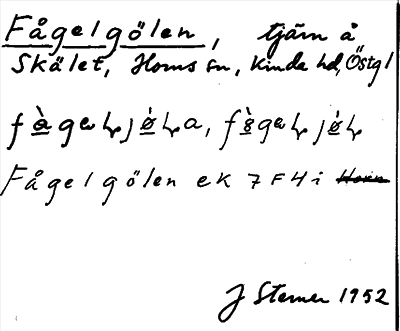 Fågelgölen, tjärn å
Skälet, Horns sn, Kinda hd, Östgl
Fågelgölen ek 7 F 4 i Horn
J Sterner 1952